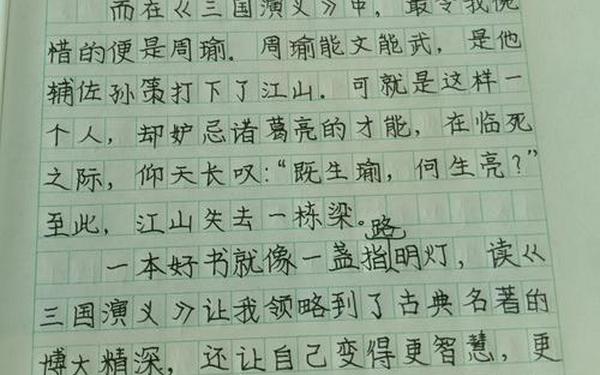 而在《三国演义》中，最令我惋
惜的便是周瑜．周瑜能文能武，是他
辅佐孙策打下了江山．可就是这样一
个人，却妒忌诸葛亮的才能，在临死
之际，仰天长叹：“既生瑜，何生亮？”
至此，江山失去一栋梁。
一本好书就像一盏指路明灯，读《
三国演义》让我领略到了古典名著的
博大精深，还让自己变得更智慧，更